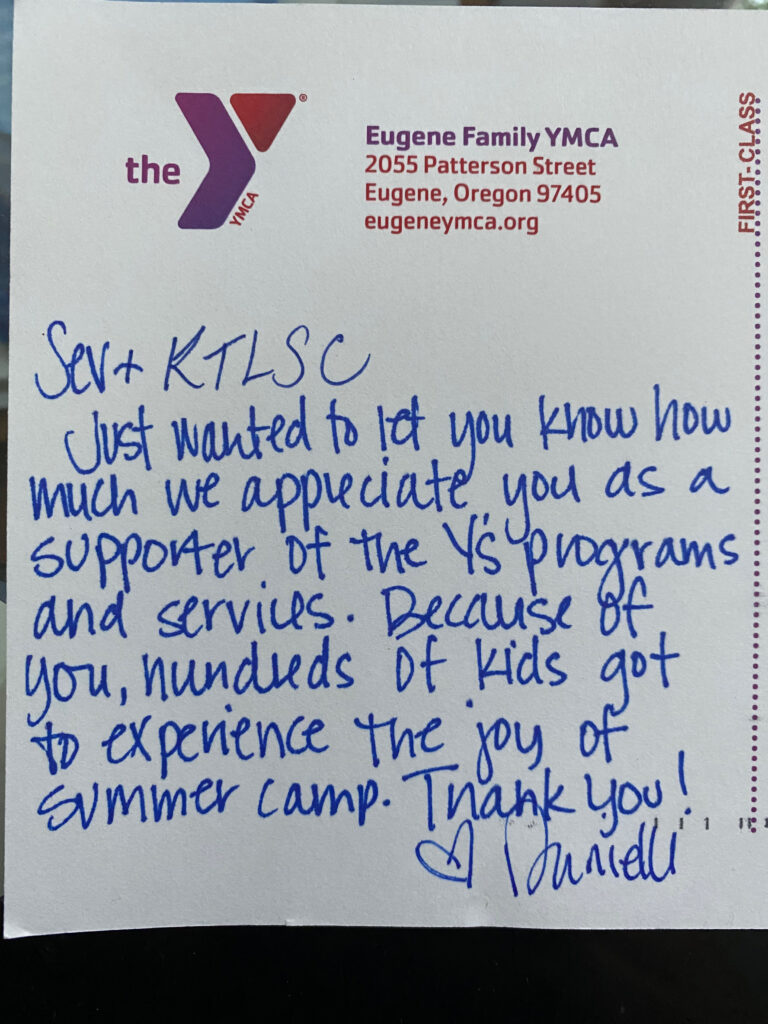 the
YMCA
®
Eugene Family YMCA
2055 Patterson Street
Eugene, Oregon 97405
eugeneymca.org
FIRST-CLASS
Sev + KTLSC
Just wanted to let you know how
much we appreciate you as a
supporter of the Y's programs
and services. Because of
you, hundreds of kids got
to experience the joy of
summer camp. Thank you!
♡ Danielle